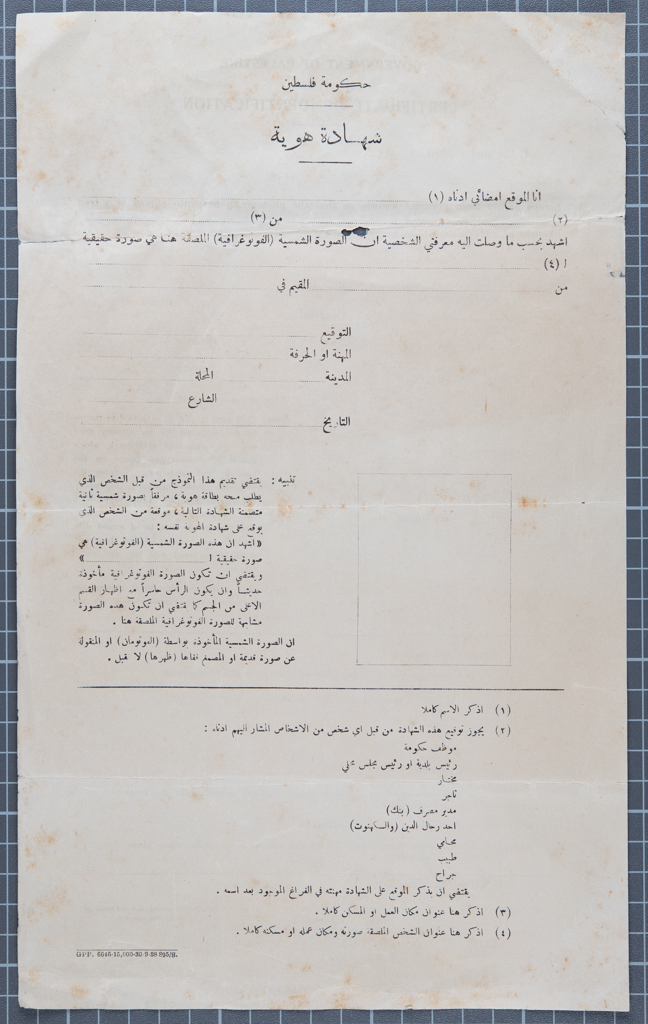 حكومة فلسطين
شهادة هوية
انا الموقع امضائي ادناه (١)
(٢) من (٣)
اشهد بحسب ما وصلت اليه معرفتي الشخصية ان الصورة الشمسية (الفوتوغرافية) الملصقة هنا هي صورة حقيقية
ل (٤)
من المقيم في
التوقيع
المهنة او الحرفة
المدينة المحلة
الشارع
التاريخ
تنبيه : يقتضي تقديم هذا النموذج من قبل الشخص الذي
يطلب منحه بطاقة هوية ، مرفقاً بصورة شمسية ثانية
متضمنة الشهادة التالية ، موقعة من الشخص الذي
يوقع على شهادة الهوية نفسه :
« اشهد ان هذه الصورة الشمسية (الفوتوغرافية) هي
صورة حقيقية ل »
ويقتضي ان تكون الصورة الفوتوغرافية مأخوذة
حديثاً وان يكون الرأس حاسراً مع اظهار القسم
الاعلى من الجسم كما يقتضي ان تكون هذه الصورة
مشابهة للصورة الفوتوغرافية الملصقة هنا .
ان الصورة الشمسية المأخوذة بواسطة (الفوتومان) او المنقولة
عن صورة قديمة او المصمغ قفاها (ظهرها) لا تقبل .
(١) اذكر الاسم كاملا
(٢) يجوز توقيع هذه الشهادة من قبل اي شخص من الاشخاص المشار اليهم ادناه :
موظف حكومة
رئيس بلدية او رئيس مجلس محلي
مختار
تاجر
مدير مصرف (بنك)
احد رجال الدين (والكهنوت)
محامي
طبيب
جراح
يقتضي ان يذكر الموقع على الشهادة مهنته في الفراغ الموجود بعد اسمه .
(٣) اذكر هنا عنوان مكان العمل او المسكن كاملا .
(٤) اذكر هنا عنوان الشخص الملصقة صورته ومكان عمله او مسكنه كاملا .